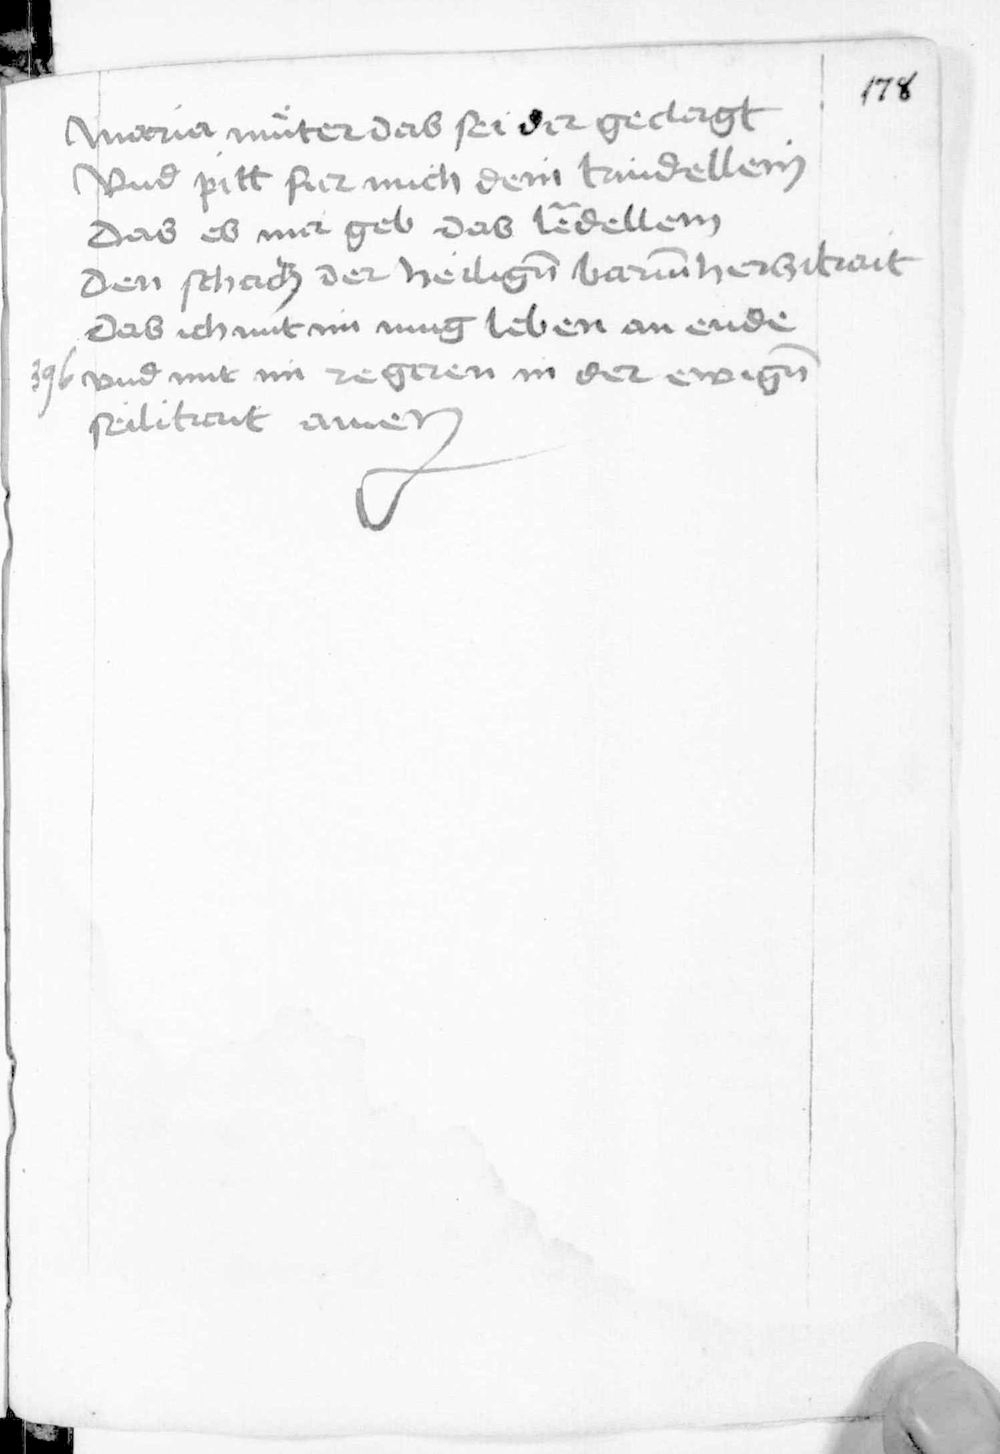 178
Maria müter das sei dir geclagt
Vnd pitt fur mich dein kindellein
Das es mir geb das lēdellein
Den schacz der heilign̄ barm̄herczikait
Das ich mit im mug leben an ende
396 vnd mit im regiren in der ewign̄
selikait amen